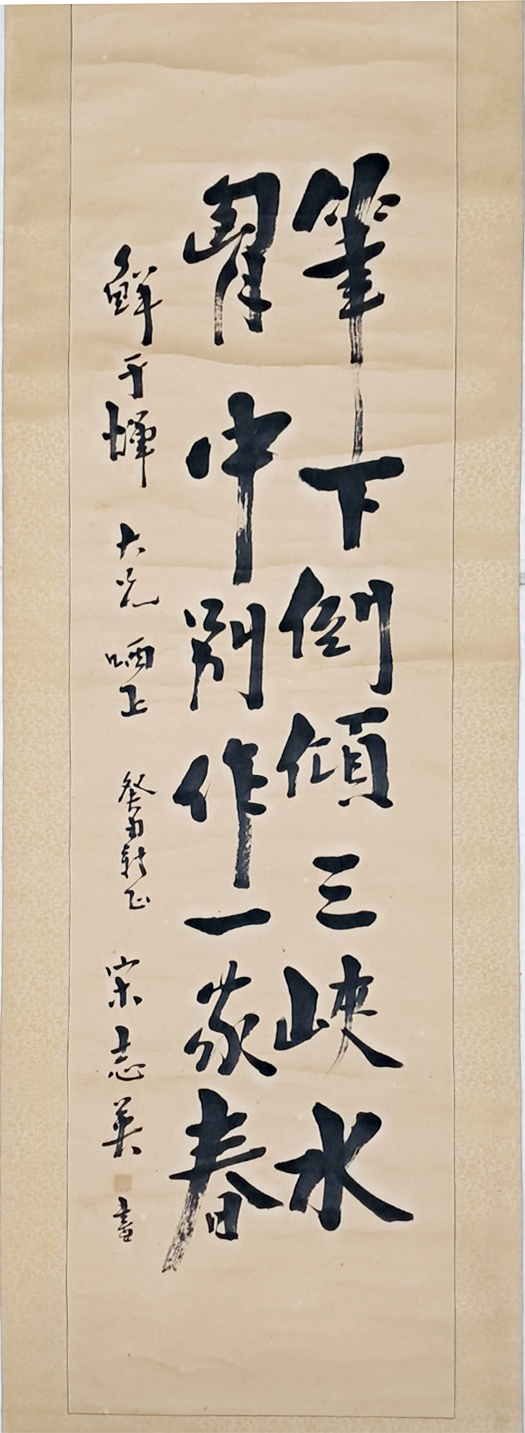 筆下倒傾三峽水
胷中別作一家春
鮮于輝大兄哂正 癸酉新正 宋志英書